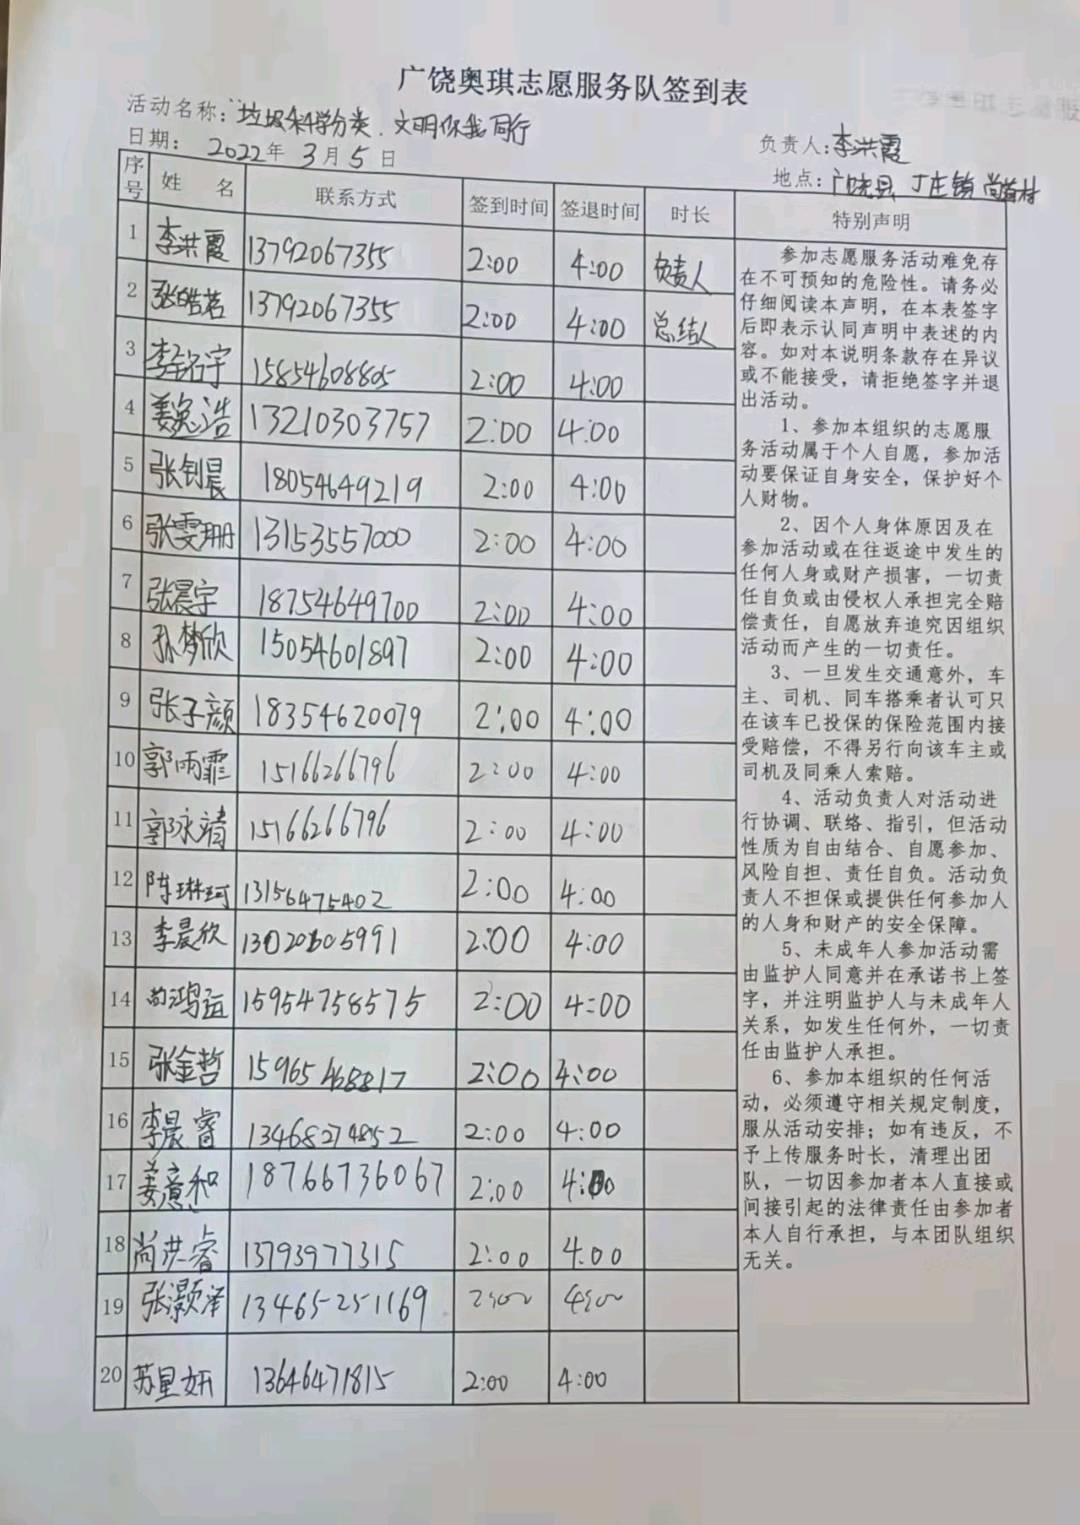 广饶奥琪志愿服务队签到表
活动名称：垃圾科学分类、文明你我同行
日期：2022年3月5日
负责人：李洪霞
地点：广饶县丁庄镇尚道村
序号 姓名 联系方式 签到时间 签退时间 时长 特别声明
1 李洪霞 13792067355 2:00 4:00 负责人
2 张皓茗 13792067355 2:00 4:00 总结人
3 李 宇 15854608805 2:00 4:00
4 姜 浩 13210303757 2:00 4:00
5 张钊晨 18054649219 2:00 4:00
6 张雯珊 13153557000 2:00 4:00
7 张晨宇 18754649700 2:00 4:00
8 孙梦欣 15054601897 2:00 4:00
9 张子颜 18354620079 2:00 4:00
10 郭雨霏 15166266796 2:00 4:00
11 郭永靖 15166266796 2:00 4:00
12 陈琳珂 13156475402 2:00 4:00
13 李晨欣 2:00 4:00
14 尚鸿运 15954758575 2:00 4:00
15 张金哲 15965468817 2:00 4:00
16 李晨睿 13468274852 2:00 4:00
17 姜意和 18766736067 2:00 4:00
18 尚洪睿 13793977315 2:00 4:00
19 张灏泽 13465251169 2:00 4:00
20 苏星妍 13646471815 2:00 4:00
参加志愿服务活动难免存
在不可预知的危险性。请务必
仔细阅读本声明，在本表签字
后即表示认同声明中表述的内
容。如对本说明条款存在异议
或不能接受，请拒绝签字并退
出活动。
1、参加本组织的志愿服
务活动属于个人自愿，参加活
动要保证自身安全，保护好个
人财物。
2、因个人身体原因及在
参加活动或在往返途中发生的
任何人身或财产损害，一切责
任自负或由侵权人承担完全赔
偿责任，自愿放弃追究因组织
活动而产生的一切责任。
3、一旦发生交通意外，车
主、司机、同车搭乘者认可只
在该车已投保的保险范围内接
受赔偿，不得另行向该车主或
司机及同乘人索赔。
4、活动负责人对活动进
行协调、联络、指引，但活动
性质为自由结合、自愿参加、
风险自担、责任自负。活动负
责人不担保或提供任何参加人
的人身和财产的安全保障。
5、未成年人参加活动需
由监护人同意并在承诺书上签
字，并注明监护人与未成年人
关系，如发生任何外，一切责
任由监护人承担。
6、参加本组织的任何活
动，必须遵守相关规定制度，
服从活动安排；如有违反，不
予上传服务时长，清理出团
队，一切因参加者本人直接或
间接引起的法律责任由参加者
本人自行承担，与本团队组织
无关。